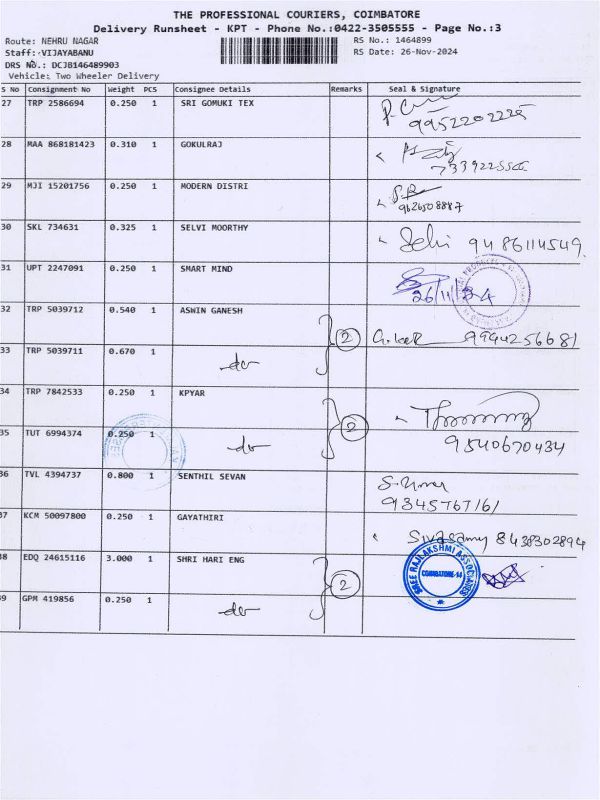 THE PROFESSIONAL COURIERS, COIMBATORE
Delivery Runsheet - KPT - Phone No.:0422-3505555 - Page No.:3
Route: NEHRU NAGAR RS No.: 1464899
Staff: VIJAYABANU RS Date: 26-Nov-2024
DRS NO.: DCJB146489903
Vehicle: Two Wheeler Delivery
S No Consignment No Weight PCS Consignee Details Remarks Seal & Signature
27 TRP 2586694 0.250 1 SRI GOMUKI TEX
9952202225
28 MAA 868181423 0.310 1 GOKULRAJ
29 MJI 15201756 0.250 1 MODERN DISTRI
9626508887
30 SKL 734631 0.325 1 SELVI MOORTHY Selvi 9486114549.
31 UPT 2247091 0.250 1 SMART MIND
26/11/24
32 TRP 5039712 0.540 1 ASWIN GANESH
2 9994256681
33 TRP 5039711 0.670 1 do
34 TRP 7842533 0.250 1 KPYAR
2
35 TUT 6994374 0.250 1 do 9540670434
36 TVL 4394737 0.800 1 SENTHIL SEVAN
9345767161
37 KCM 50097800 0.250 1 GAYATHIRI
Sivasamy 8438302894
38 EDQ 24615116 3.000 1 SHRI HARI ENG
SREE RAJLAKSHMI ASSOCIATES
COIMBATORE-14
2
39 GPM 419856 0.250 1 do